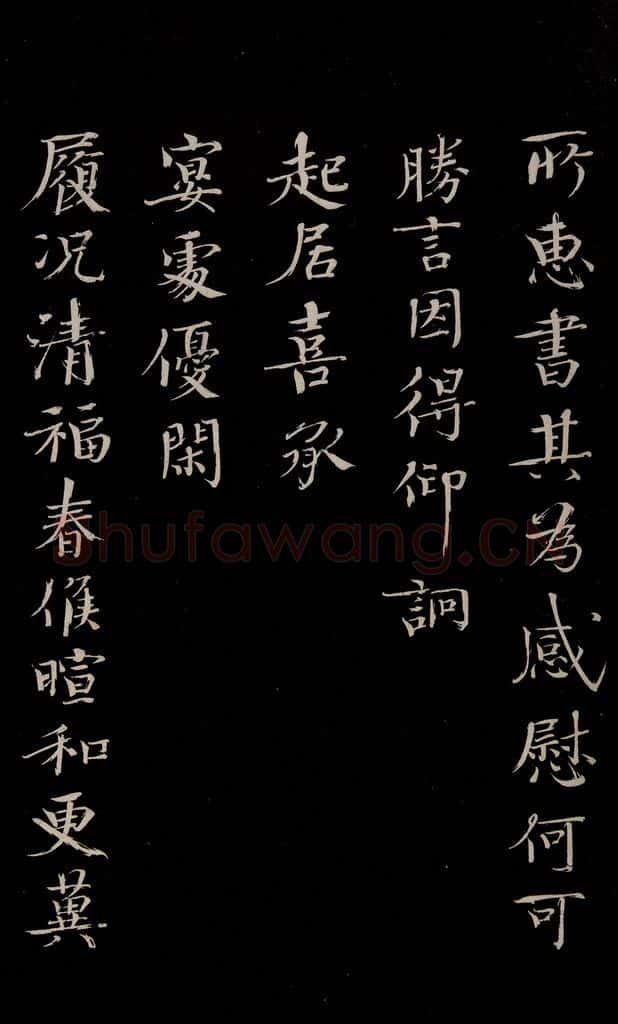 所惠書其為感慰何可
勝言因得仰詗
起居喜承
宴處優閑
履况清福春候暄和更冀
shufawang.cn